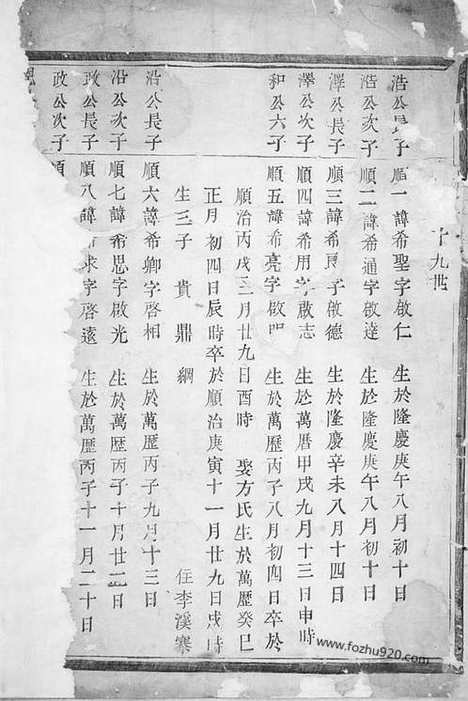 十九世
浩公長子 順一諱希聖字啟仁 生於隆慶庚午八月初十日
浩公次子 順二諱希通字啟達 生於隆慶庚午八月初十日
澤公長子 順三諱希 子啟德 生於隆慶辛未八月十四日
澤公次子 順四諱希用字啟志 生於萬曆甲戌九月十三日申時
和公六子 順五諱希亮字啟明 生於萬歷丙子八月初四日卒於
順治丙戌三月廿九日酉時 娶方氏生於萬歷癸巳
正月初四日辰時卒於順治庚寅十一月廿九日戌時
生三子 貴 鼎 綱 住李溪寨
沿公長子 順六諱希卿字啓相 生於萬歷丙子九月十三日
沿公次子 順七諱希思字啟光 生於萬歷丙子十月廿二日
政公長子 順八諱希求字啓遠 生於萬歷丙子十一月二十日
政公次子 順
www.fozhu920.com